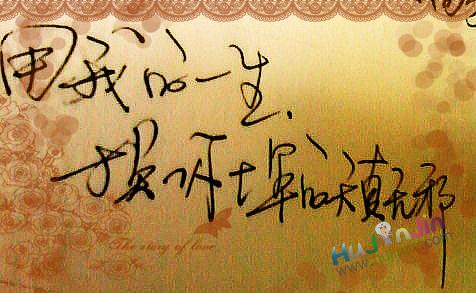 用我的一生、
换你十年的天真无邪
The story of love
HuJinJin